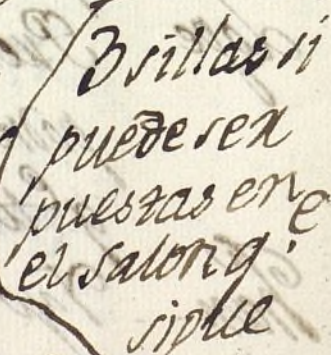 3 sillas si
puede ser
puestas en
el salon q.e
sigue